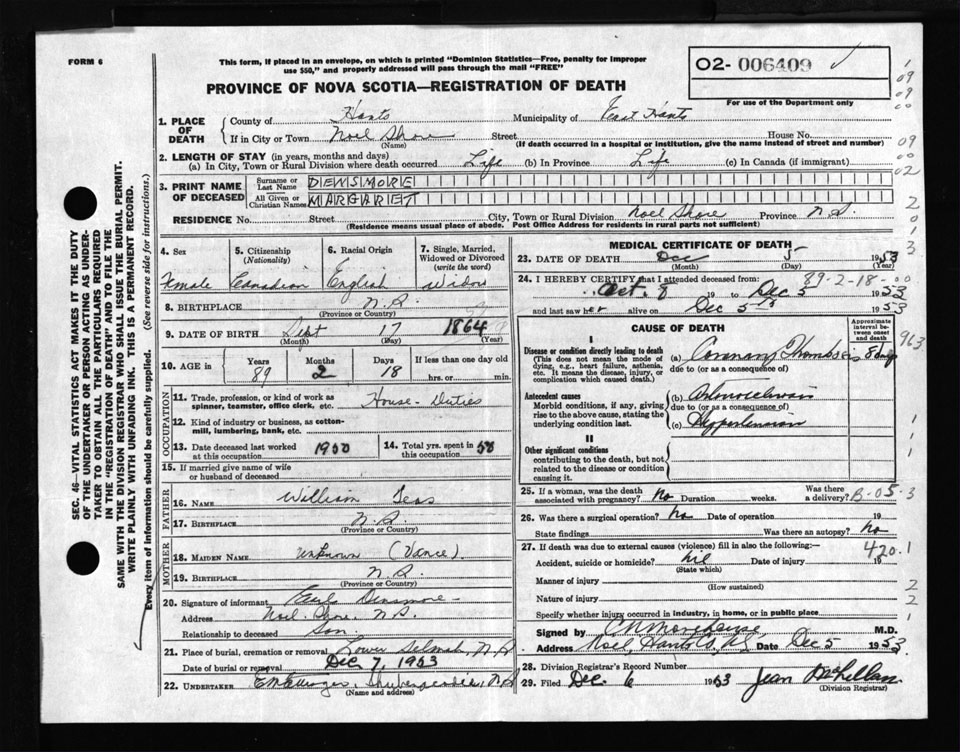 FORM 6
This form, if placed in an envelope, on which is printed "Dominion Statistics—Free, penalty for improper
use $50," and properly addressed will pass through the mail "FREE"
O2- 006409
For use of the Department only
PROVINCE OF NOVA SCOTIA—REGISTRATION OF DEATH
1. PLACE OF DEATH
County of Hants Municipality of East Hants
If in City or Town Noel Shore Street House No.
(Name) (If death occurred in a hospital or institution, give the name instead of street and number)
2. LENGTH OF STAY (in years, months and days)
(a) In City, Town or Rural Division where death occurred Life (b) In Province Life (c) In Canada (if immigrant)
3. PRINT NAME OF DECEASED
Surname or Last Name DENSMORE
All Given or Christian Names MARGARET
RESIDENCE No. Street City, Town or Rural Division Noel Shore Province N.S.
(Residence means usual place of abode. Post Office Address for residents in rural parts not sufficient)
4. Sex Female
5. Citizenship (Nationality) Canadian
6. Racial Origin English
7. Single, Married, Widowed or Divorced (write the word) Widow
8. BIRTHPLACE N.S.
(Province or Country)
9. DATE OF BIRTH Sept 17 1864
(Month) (Day) (Year)
10. AGE in Years 89 Months 2 Days 18 If less than one day old
hrs. or min.
OCCUPATION
11. Trade, profession, or kind of work as
spinner, teamster, office clerk, etc. House-Duties
12. Kind of industry or business, as cotton-
mill, lumbering, bank, etc.
13. Date deceased last worked
at this occupation 1950
14. Total yrs. spent in
this occupation 58
15. If married give name of wife
or husband of deceased
FATHER
16. NAME William
17. BIRTHPLACE N.S.
(Province or Country)
MOTHER
18. MAIDEN NAME unknown (Vance).
19. BIRTHPLACE N.S.
(Province or Country)
20. Signature of informant Earle Densmore
Address Noel Shore, N.S.
Relationship to deceased Son.
21. Place of burial, cremation or removal Lower Selmah, N.S
Date of burial or removal Dec 7, 1953
22. UNDERTAKER Shubenacadie, N.S
(Name and address)
MEDICAL CERTIFICATE OF DEATH
23. DATE OF DEATH Dec 5 1953
(Month) (Day) (Year)
24. I HEREBY CERTIFY that I attended deceased from: 89-2-18
Oct. 8 19 to Dec 5 1953
and last saw her alive on Dec 5th 1953
CAUSE OF DEATH
Approximate interval between onset and death
I
Disease or condition directly leading to death
(This does not mean the mode of
dying, e.g., heart failure, asthenia,
etc. It means the disease, injury, or
complication which caused death.)
(a) Coronary Thrombosis 8 days
due to (or as a consequence of)
Antecedent causes
Morbid conditions, if any, giving
rise to the above cause, stating the
underlying condition last.
(b)
due to (or as a consequence of)
(c) Hypertension
II
Other significant conditions
contributing to the death, but not
related to the disease or condition
causing it.
25. If a woman, was the death
associated with pregnancy? No Duration weeks. Was there
a delivery? B-05-3
26. Was there a surgical operation? No Date of operation 19
State findings Was there an autopsy? No
27. If death was due to external causes (violence) fill in also the following:— 420.1
Accident, suicide or homicide? nil Date of injury 19
(State which)
Manner of injury
(How sustained)
Nature of injury
Specify whether injury occurred in industry, in home, or in public place
Signed by M.D.
Address Noel, Hants Co, N.S Date Dec 5 1953
28. Division Registrar's Record Number
29. Filed Dec. 6 1953 Jean McLellan
(Division Registrar)
SEC. 46—VITAL STATISTICS ACT MAKES IT THE DUTY
OF THE UNDERTAKER OR PERSON ACTING AS UNDER-
TAKER TO OBTAIN ALL THE PARTICULARS REQUIRED
IN THE "REGISTRATION OF DEATH" AND TO FILE THE
SAME WITH THE DIVISION REGISTRAR WHO SHALL ISSUE THE BURIAL PERMIT.
WRITE PLAINLY WITH UNFADING INK. THIS IS A PERMANENT RECORD.
Every item of information should be carefully supplied. (See reverse side for instructions.)